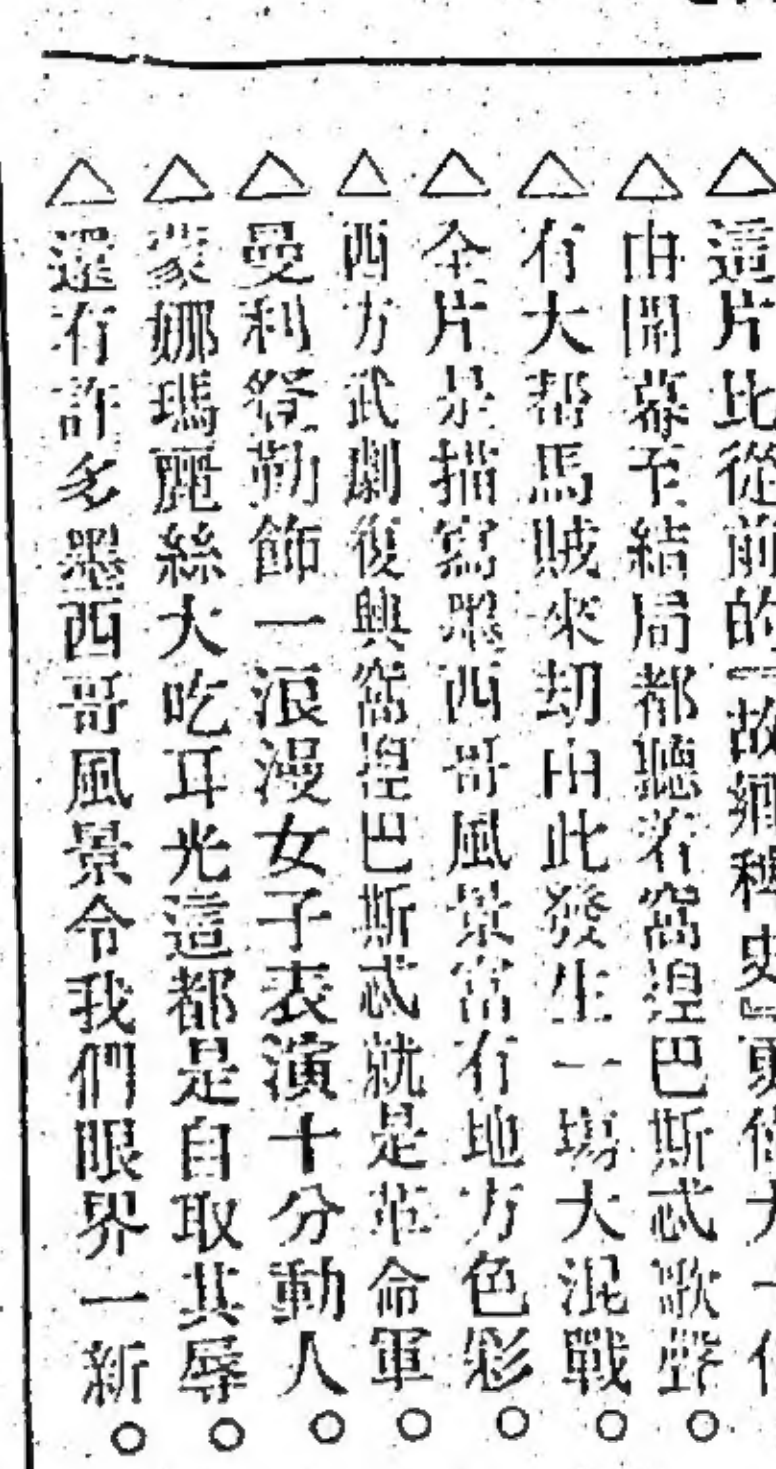 △這片比從前的『故鄉種史』更偉大十倍
△由開幕至結局都聽着窩湼巴斯忒歌聲○
△有大帮馬賊來刧由此發生一塲大混戰○
△全片是描寫墨西哥風景富有地方色彩○
△西方武劇復興窩湼巴斯忒就是革命軍○
△曼利登勒飾一浪漫女子表演十分動人○
△蒙娜瑪麗絲大吃耳光這都是自取其辱○
△還有許多墨西哥風景令我們眼界一新○